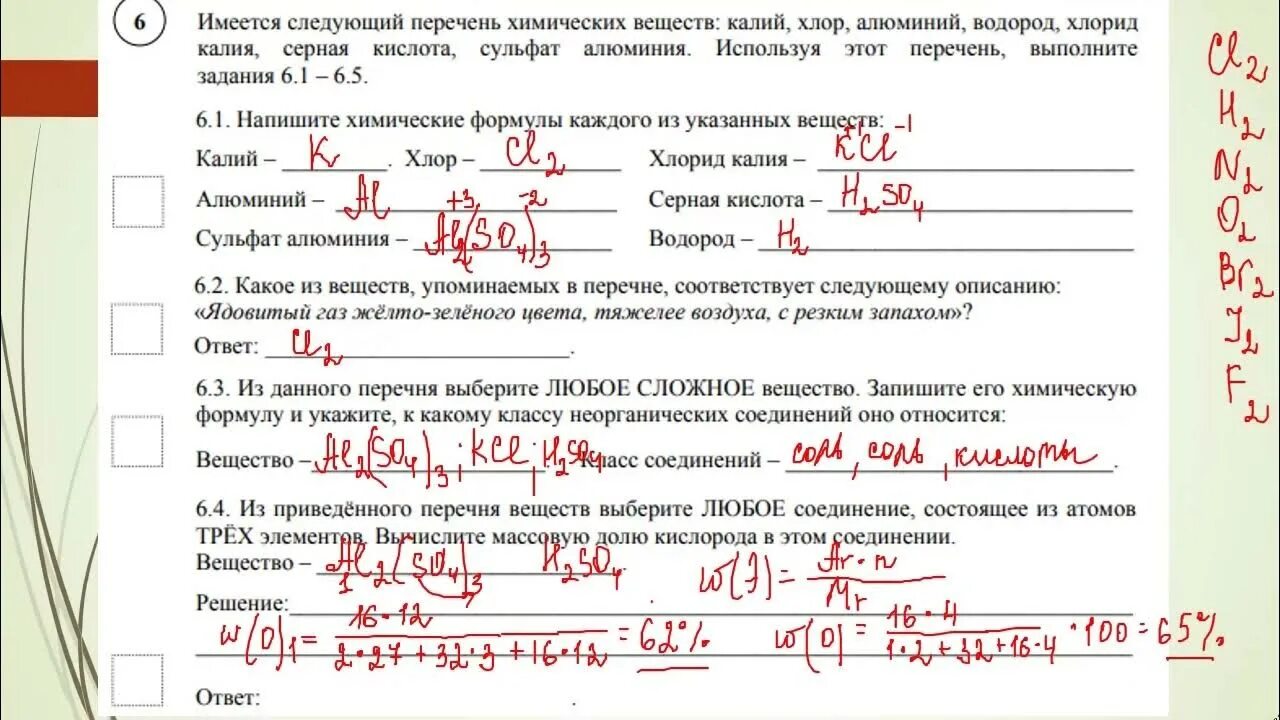 6
Имеется следующий перечень химических веществ: калий, хлор, алюминий, водород, хлорид
калия, серная кислота, сульфат алюминия. Используя этот перечень, выполните
задания 6.1 – 6.5.
6.1. Напишите химические формулы каждого из указанных веществ:
Калий – K. Хлор – Cl₂ Хлорид калия – K⁺¹Cl⁻¹
Алюминий – Al Серная кислота – H₂SO₄
+3 -2
Сульфат алюминия – Al₂(SO₄)₃ Водород – H₂
6.2. Какое из веществ, упоминаемых в перечне, соответствует следующему описанию:
«Ядовитый газ жёлто-зелёного цвета, тяжелее воздуха, с резким запахом»?
Ответ: Cl₂.
6.3. Из данного перечня выберите ЛЮБОЕ СЛОЖНОЕ вещество. Запишите его химическую
формулу и укажите, к какому классу неорганических соединений оно относится:
Вещество – Al₂(SO₄)₃; KCl; H₂SO₄ Класс соединений – соль, соль, кислоты.
6.4. Из приведённого перечня веществ выберите ЛЮБОЕ соединение, состоящее из атомов
ТРЁХ элементов. Вычислите массовую долю кислорода в этом соединении.
Вещество – Al₂(SO₄)₃ H₂SO₄. w(Э) = Ar·n / Mr
1
Решение:
w(O)₁ = 16·12 / 2·27+32·3+16·12 = 62% w(O) = 16·4 / 1·2+32+16·4 ·100 = 65%.
Ответ: .
Cl₂
H₂
N₂
O₂
Br₂
I₂
F₂